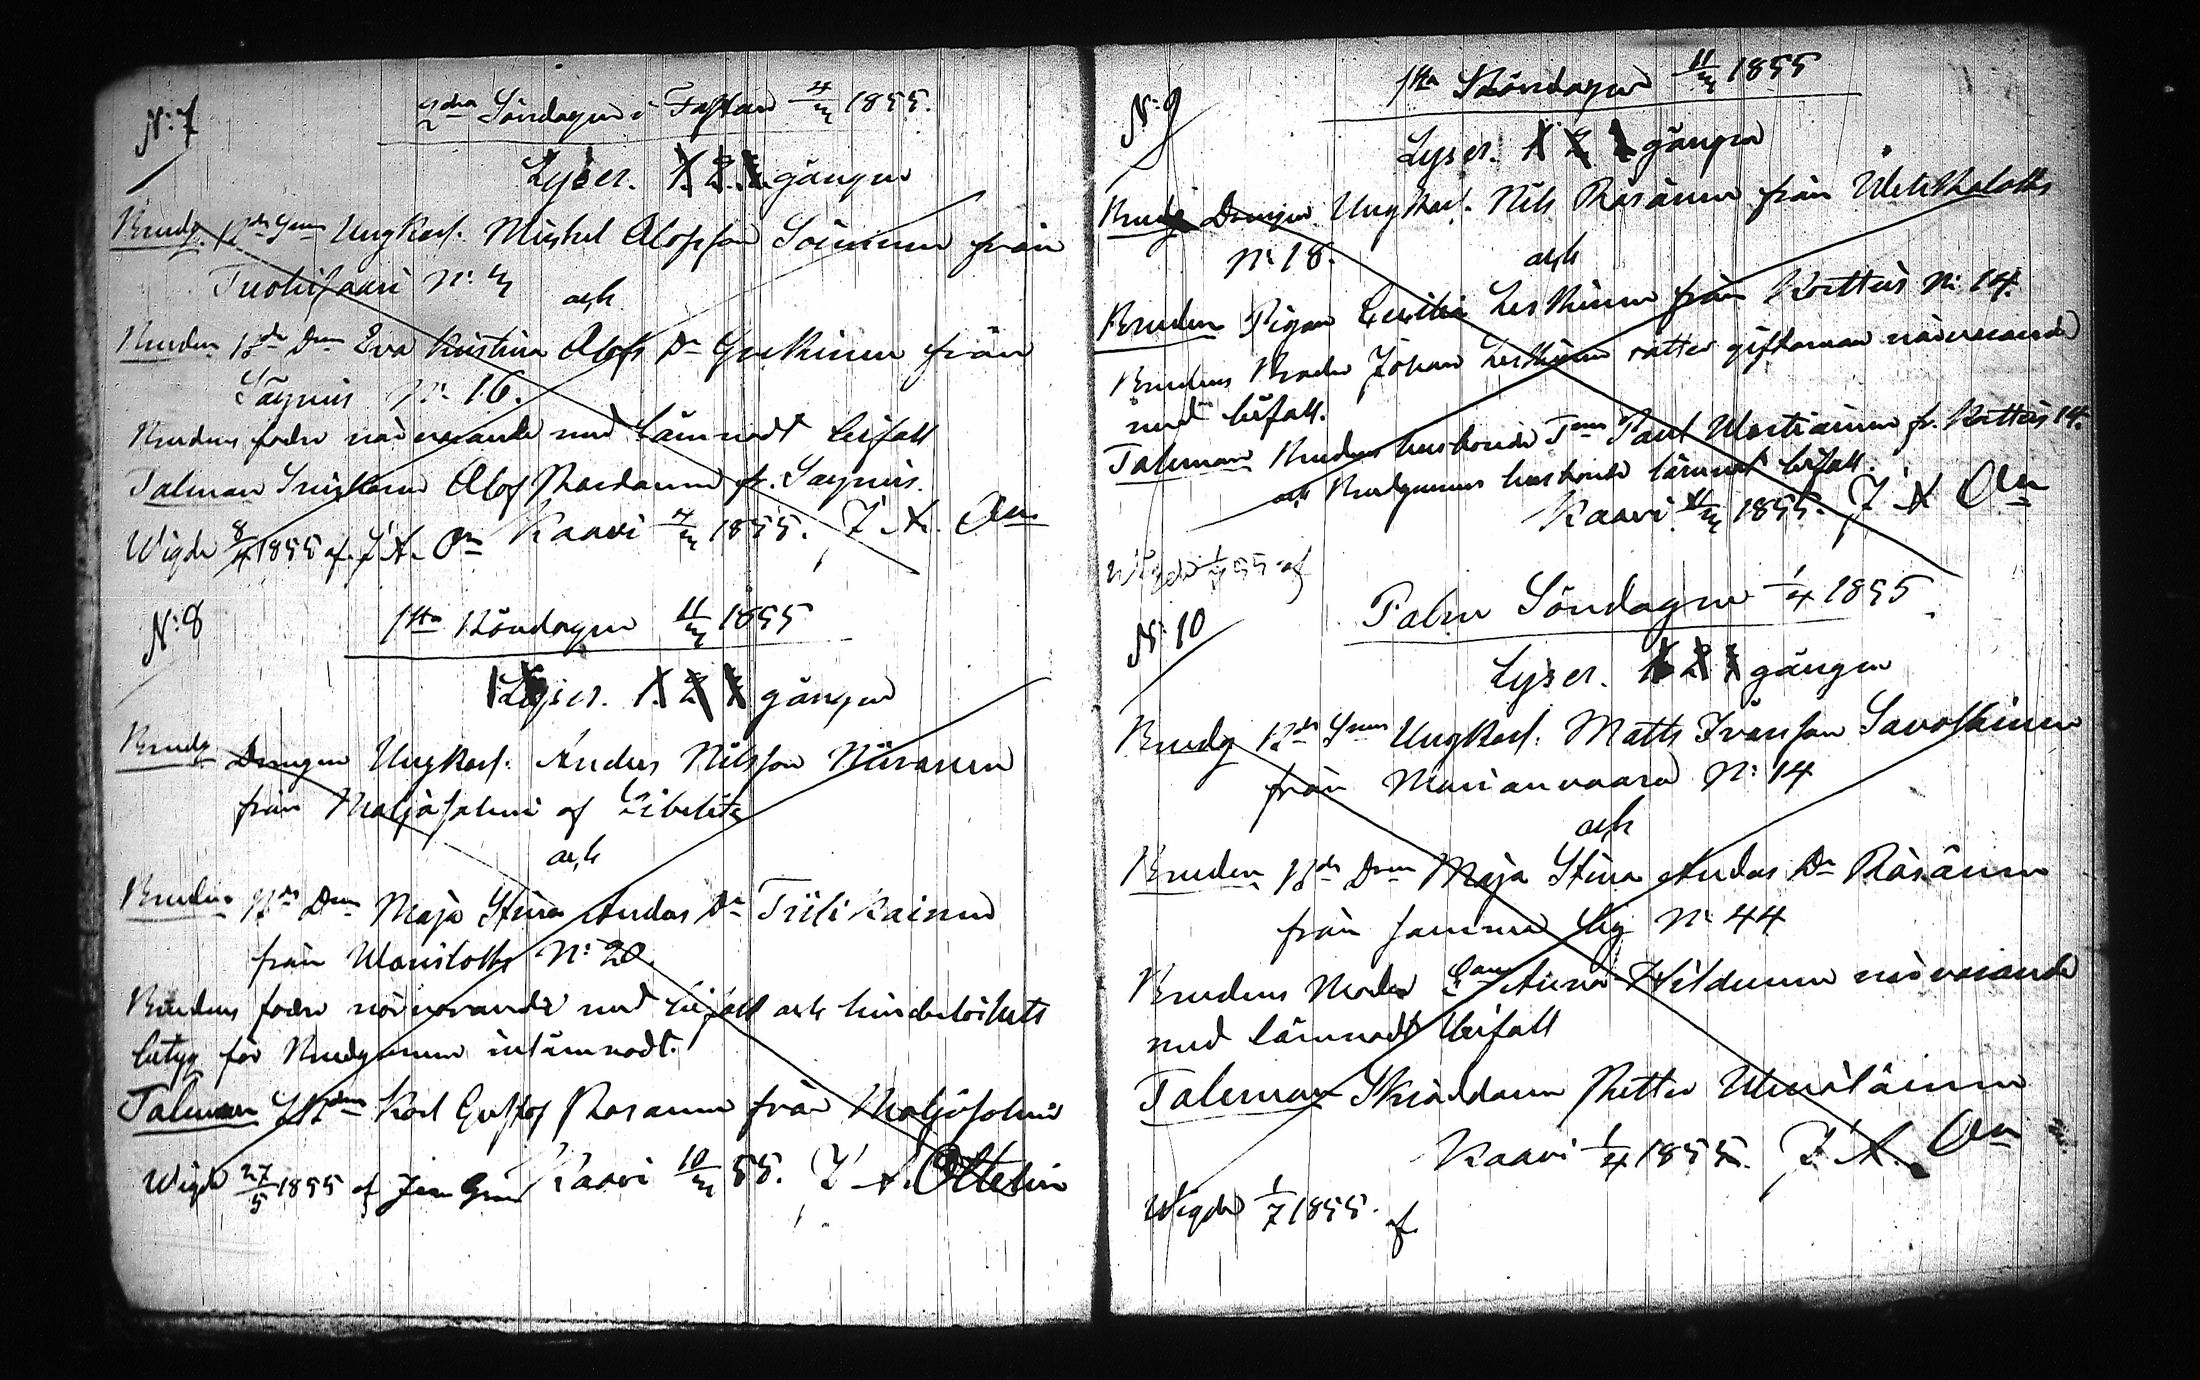 N:7
2dra Söndagen i Fastan 4/3 1855.
Lyser. 1. 2. 3. gången
Brudg. Bde Snn Ungkarl. Mickel Olofsson Soininen från
Tuotisaari N: 3
och
Bruden Bde Drn Eva Kristina Olofs Dr från
Säyneis N: 16.
Brudens fader närvarande med lämnadt bifall
Talman Olof fr. Säyneis.
Wigde 8/4 1855 af J A. On Kaavi 4/3 1855. J A. On
N:8
1sta Böndagen 11/3 1855
Lyser. 1. 2. 3. gången
Brudg Drengen Ungkarl. Anders Nilsson
från Maljasalmi af Libelitz
och
Bruden Bde Drn Maja Stina Anders Dr Tiilikainen
från Wonislotts N: 20.
Brudens fader närvarande med bifall och hinderlöshets
betyg för Brudgummen inlämnadt.
Talman Karl Gustof Rasanen från Maljasalmi
Wigde 27/5 1855 af Kaavi 10/3 55. J A. Ottelin
N:9
1sta Böndagen 11/3 1855
Lyser. 1 2 3 gången
Brudg Drengen Ungkarl. Nils Räsänen från
N: 18.
och
Bruden Pigan Cecilia Leskinen från Kortteis N: 14.
Brudens Broder Johan Leskinen rätter giftoman närvarande
med bifall.
Talman Brudens husbonde Paul fr. Kortteis 14.
och Brudgummens husbonde lämnat bifall.
Kaavi 11/3 1855. J A On
Wigde 55 af
N: 10
Palm Söndagen 1/4 1855.
Lyser. 1 2 3 gången
Brudg Bde Snn Ungkarl. Matts Ivarsson Savolainen
från Marianvaara N: 14
och
Bruden Bde Drn Maja Stina Anders Dr Räsänen
från samma by N: 44
Brudens Moder Anna närvarande
med lämnadt bifall
Taleman Skräddaren Petter
Kaavi 1/4 1855. J. A. On
Wigde 1/7 1855. af